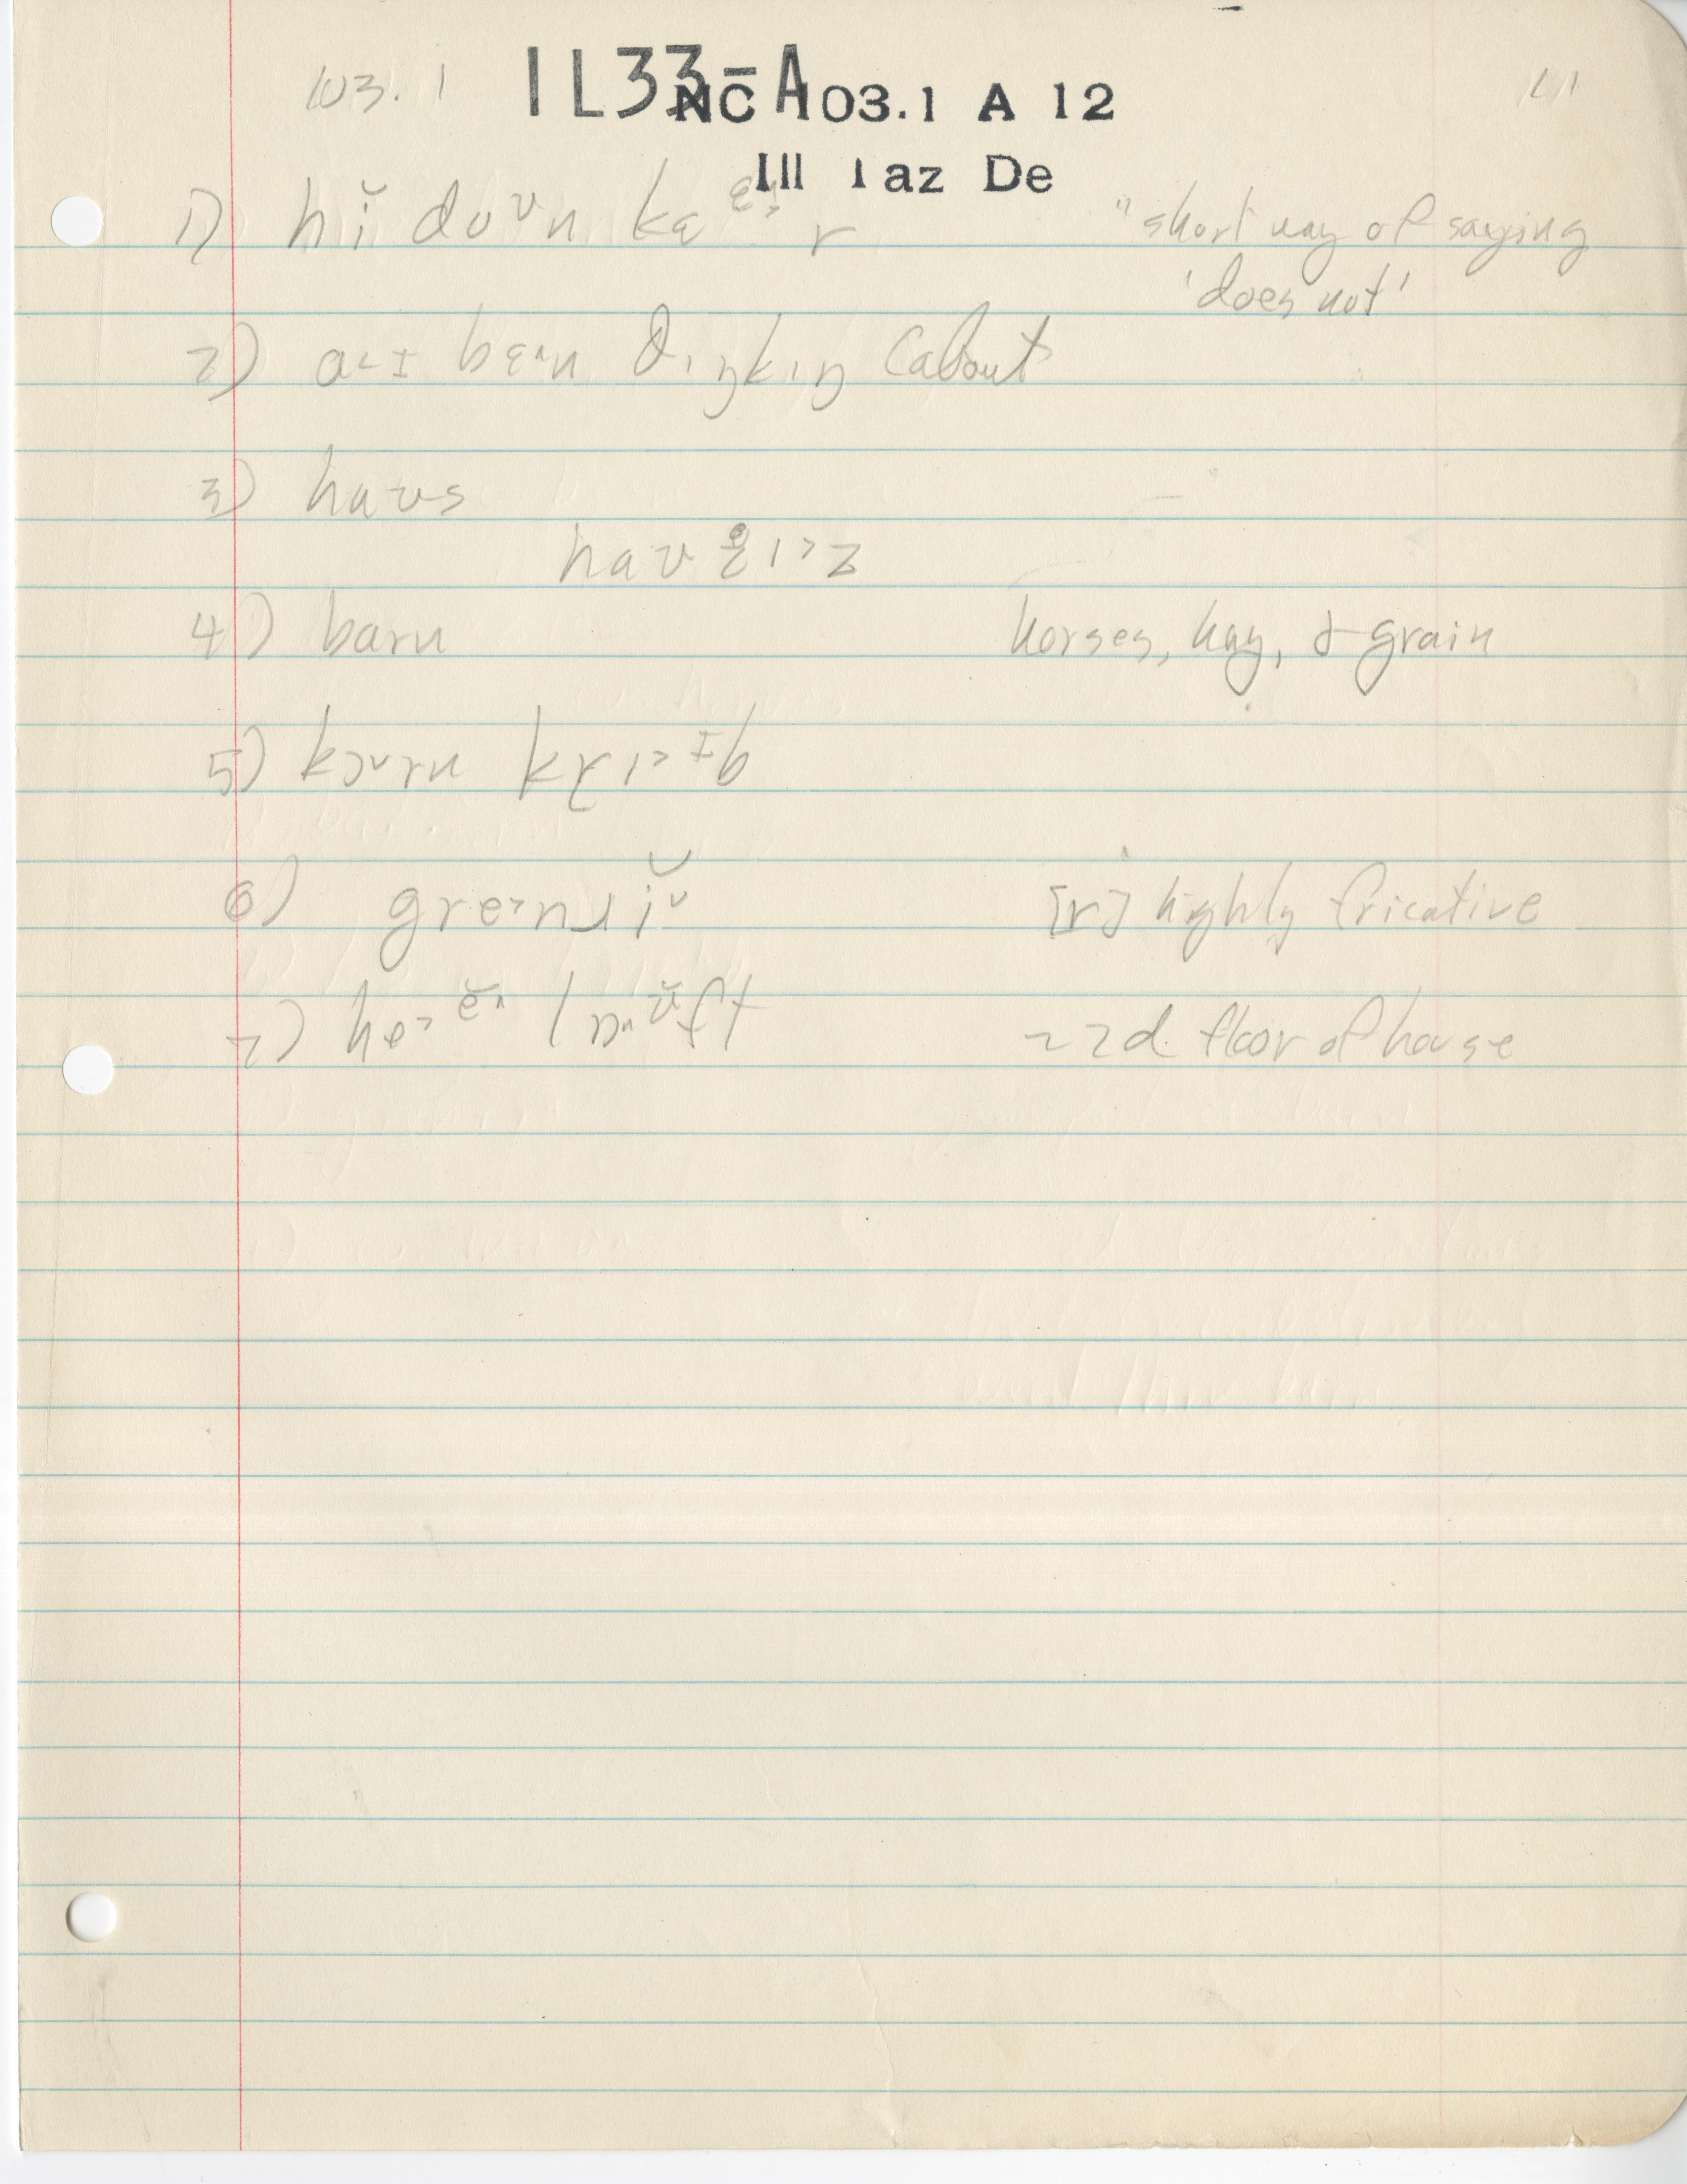 103.1 1L33-A NC 103.1 A 12 11
Ill 1 az De
1) hĭ doʊn kɛ ɛ r "short way of saying
'does not'
2) a<ɪ bɛ^n θɪŋkɪŋ (about
3) haʊs
haʊz̥ɪ>z
4) barn horses, hay, & grain
5) kɔ˅rn krɪ>ɪb
6) gre>nɹi˅ [r] highly fricative
7) he> ĕ^ lɒ^ ft ~ 2d floor of house